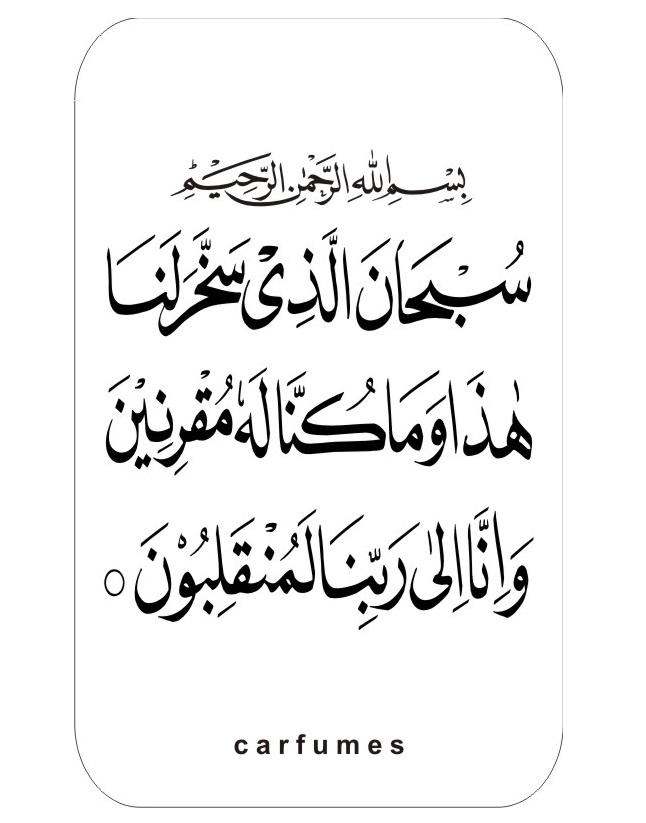 بِسْمِ اللهِ الرَّحْمٰنِ الرَّحِيْمِ
سُبْحَانَ الَّذِىْ سَخَّرَ لَنَا
هٰذَا وَمَا كُنَّا لَهٗ مُقْرِنِيْنَ
وَاِنَّا اِلٰى رَبِّنَا لَمُنْقَلِبُوْنَ ○
carfumes